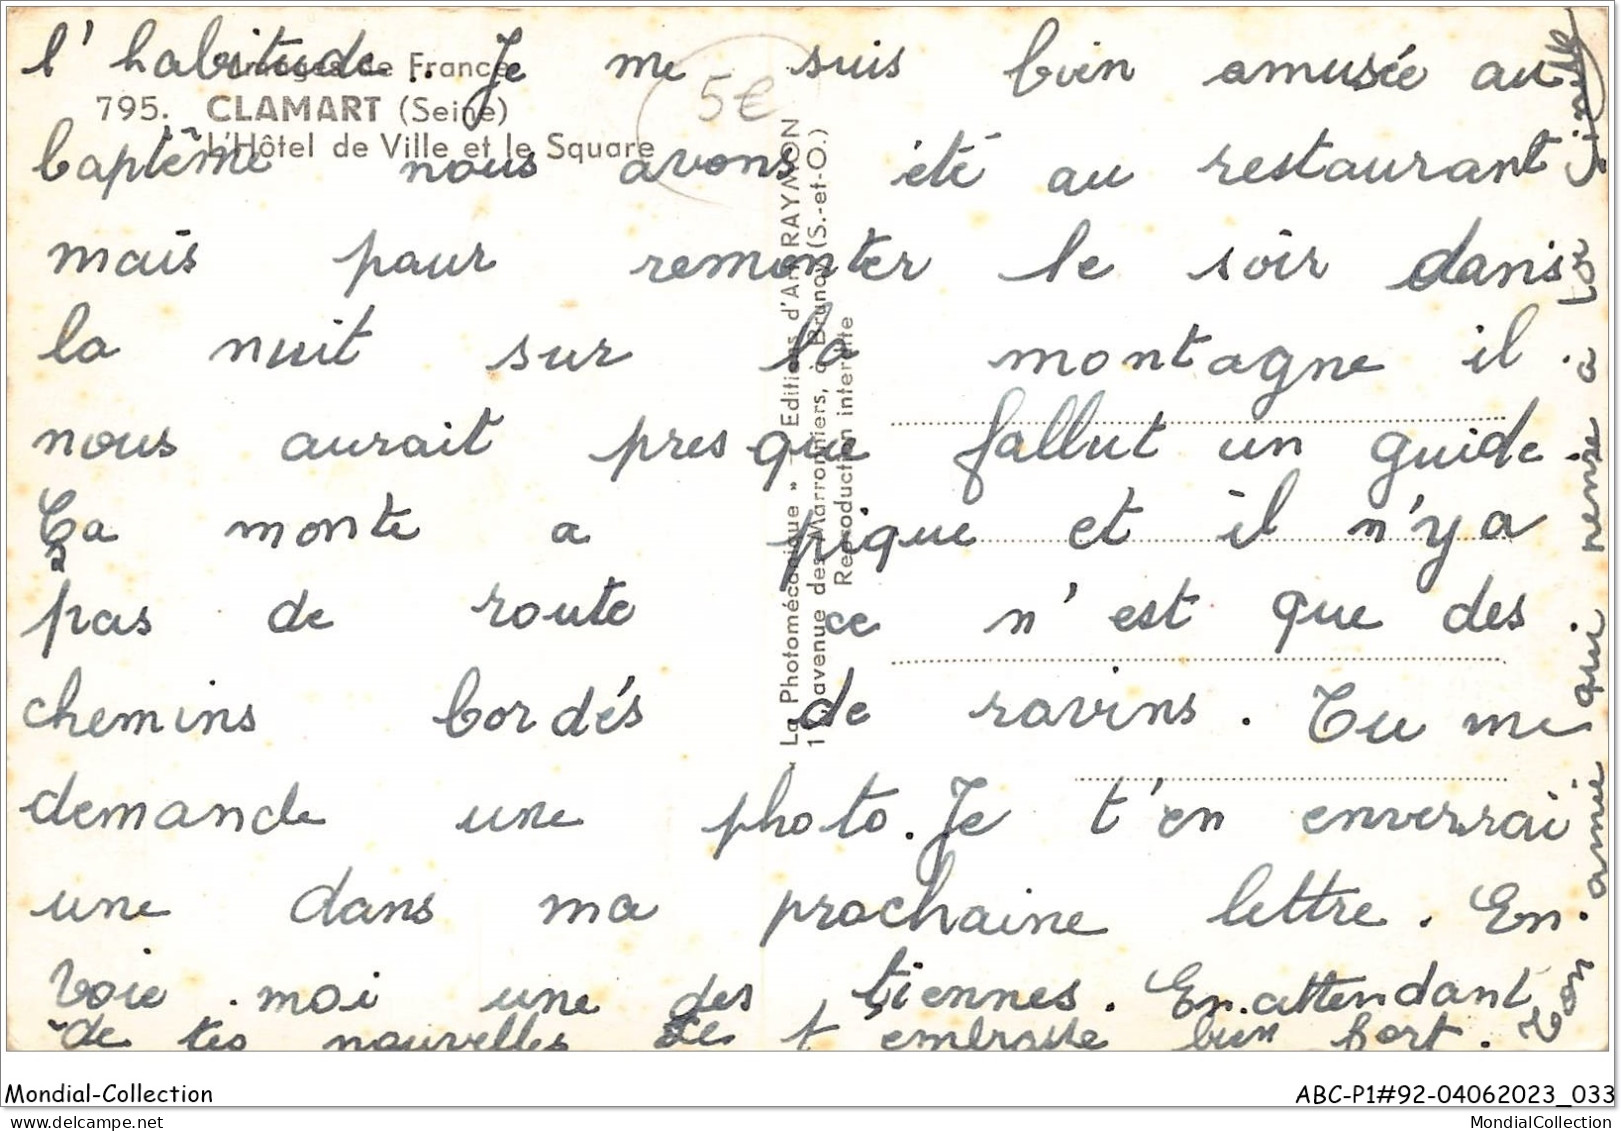 l'habitude.. Je me suis bien amusée au
baptême nous avons été au restaurant
mais pour remonter le soir dans
la nuit sur la montagne il
nous aurait presque fallut un guide.
Ça monte a pique et il n'y a
pas de route ce n'est que des
chemins bordés de ravins. Tu me
demande une photo. Je t'en enverrai
une dans ma prochaine lettre. En
voie moi une des tiennes. En attendant
de tes nouvelles Je t'embrasse bien fort.
Ton amie qui pense a toi
Images de France
795. CLAMART (Seine)
L'Hôtel de Ville et le Square
5€
« La Photomécanique » - Editions d'Art RAYMON
1 avenue des Marronniers, à Brunoy (S.-et-O.)
Reproduction interdite
Mondial-Collection
ABC-P1#92-04062023_033
MondialCollection